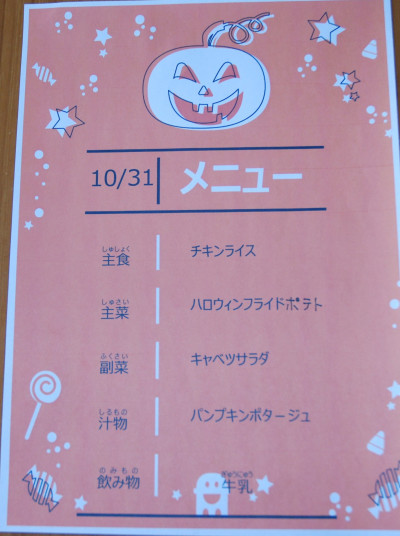 10/31 メニュー
しゅしょく
主食 チキンライス
しゅさい
主菜 ハロウィンフライドポテト
ふくさい
副菜 キャベツサラダ
しるもの
汁物 パンプキンポタージュ
のみもの ぎゅうにゅう
飲み物 牛乳